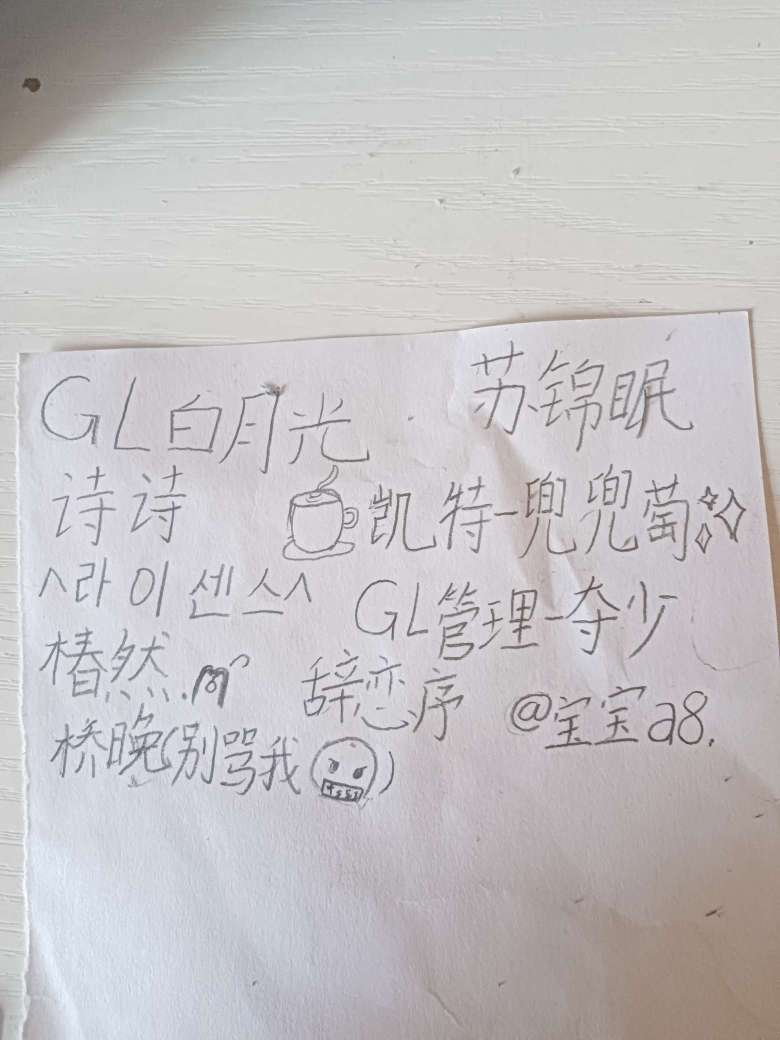 GL白月光 苏锦眠
诗诗 凯特-兜兜萄
^라이센스^ GL管理-夺少
椿然. 辞恋序 @宝宝a8.
桥晚(别骂我)